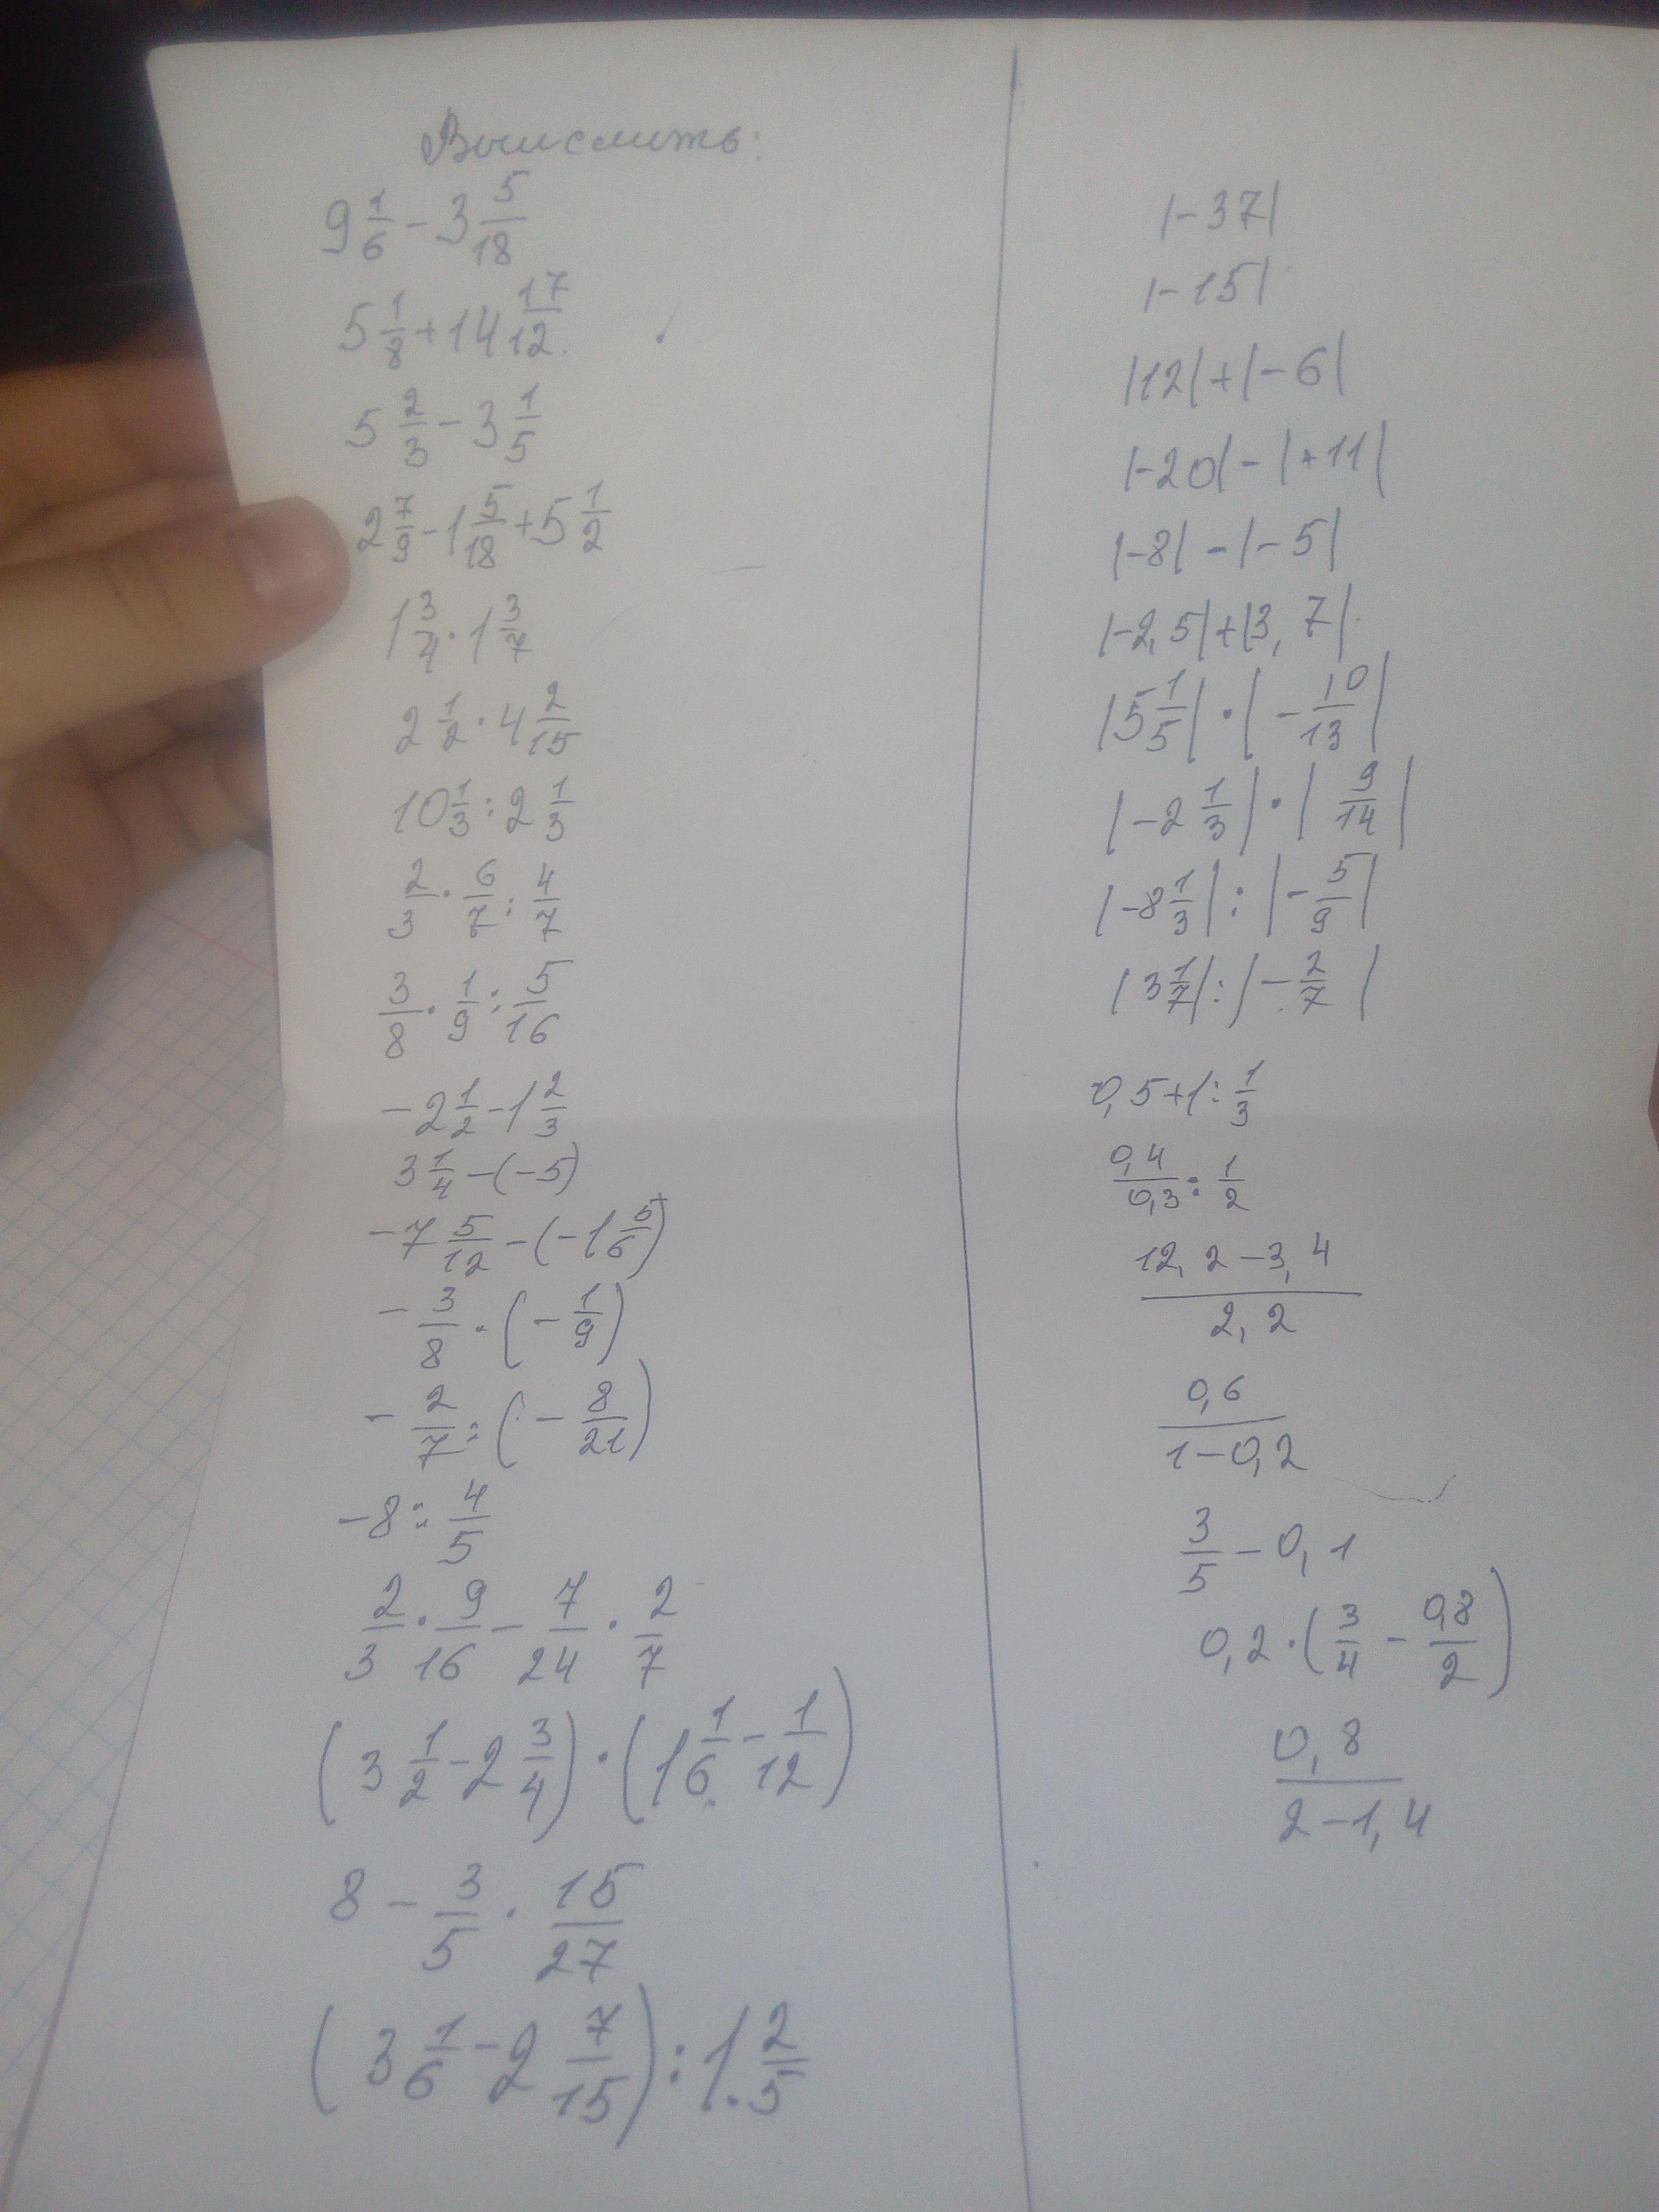 Вычислить:
9 1/6 - 3 5/18
5 1/8 + 14 17/12
5 2/3 - 3 1/5
2 7/9 - 1 5/18 + 5 1/2
1 3/4 · 1 3/7
2 1/2 · 4 2/15
10 1/3 : 2 1/3
2/3 · 6/7 : 4/7
3/8 · 1/9 : 5/16
-2 1/2 - 1 2/3
3 1/4 - (-5)
-7 5/12 - (-1 5/6)
-3/8 · (-1/9)
-2/7 : (-8/21)
-8 : 4/5
2/3 · 9/16 - 7/24 · 2/7
(3 1/2 - 2 3/4) · (1 1/6 - 1/12)
8 - 3/5 · 15/27
(3 1/6 - 2 7/15) : 1 2/5
|-37|
|-15|
|12| + |-6|
|-20| - |+11|
|-8| - |-5|
|-2,5| + |3,7|
|5 1/5| · |-10/13|
|-2 1/3| · |9/14|
|-8 1/3| : |-5/9|
|3 1/7| : |-2/7|
0,5 + 1 : 1/3
0,4/0,3 : 1/2
12,2 - 3,4
2,2
0,6
1 - 0,2
3/5 - 0,1
0,2 · (3/4 - 0,8/2)
0,8
2 - 1,4